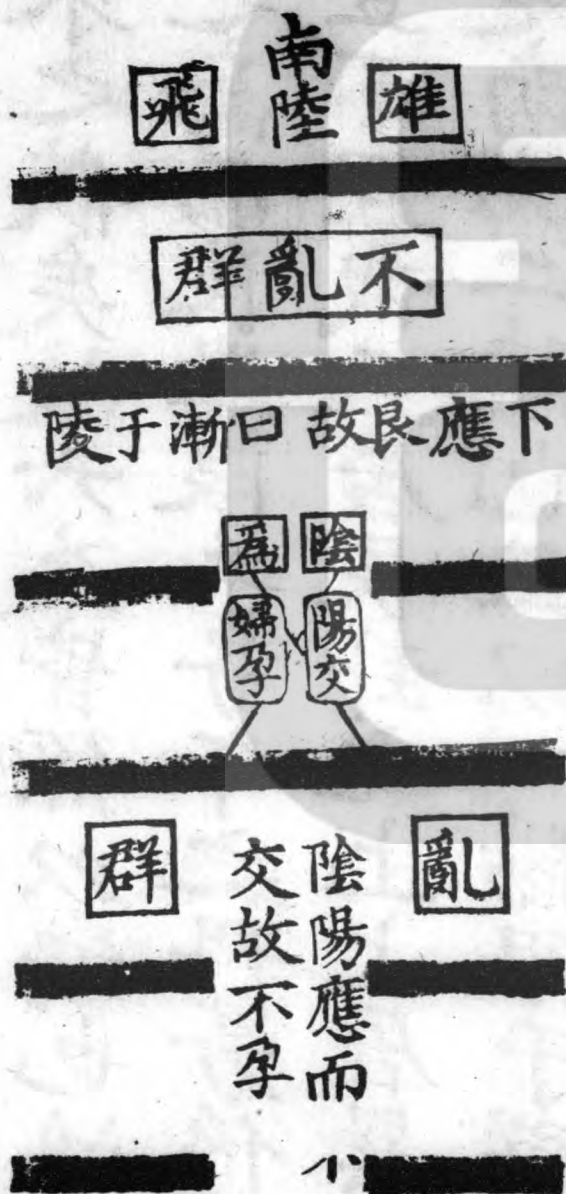 雄
南陸
飛
不亂群
下應艮故曰漸于陵
陰
陽交
為
婦孕
亂
陰陽應而不
交故不孕
群